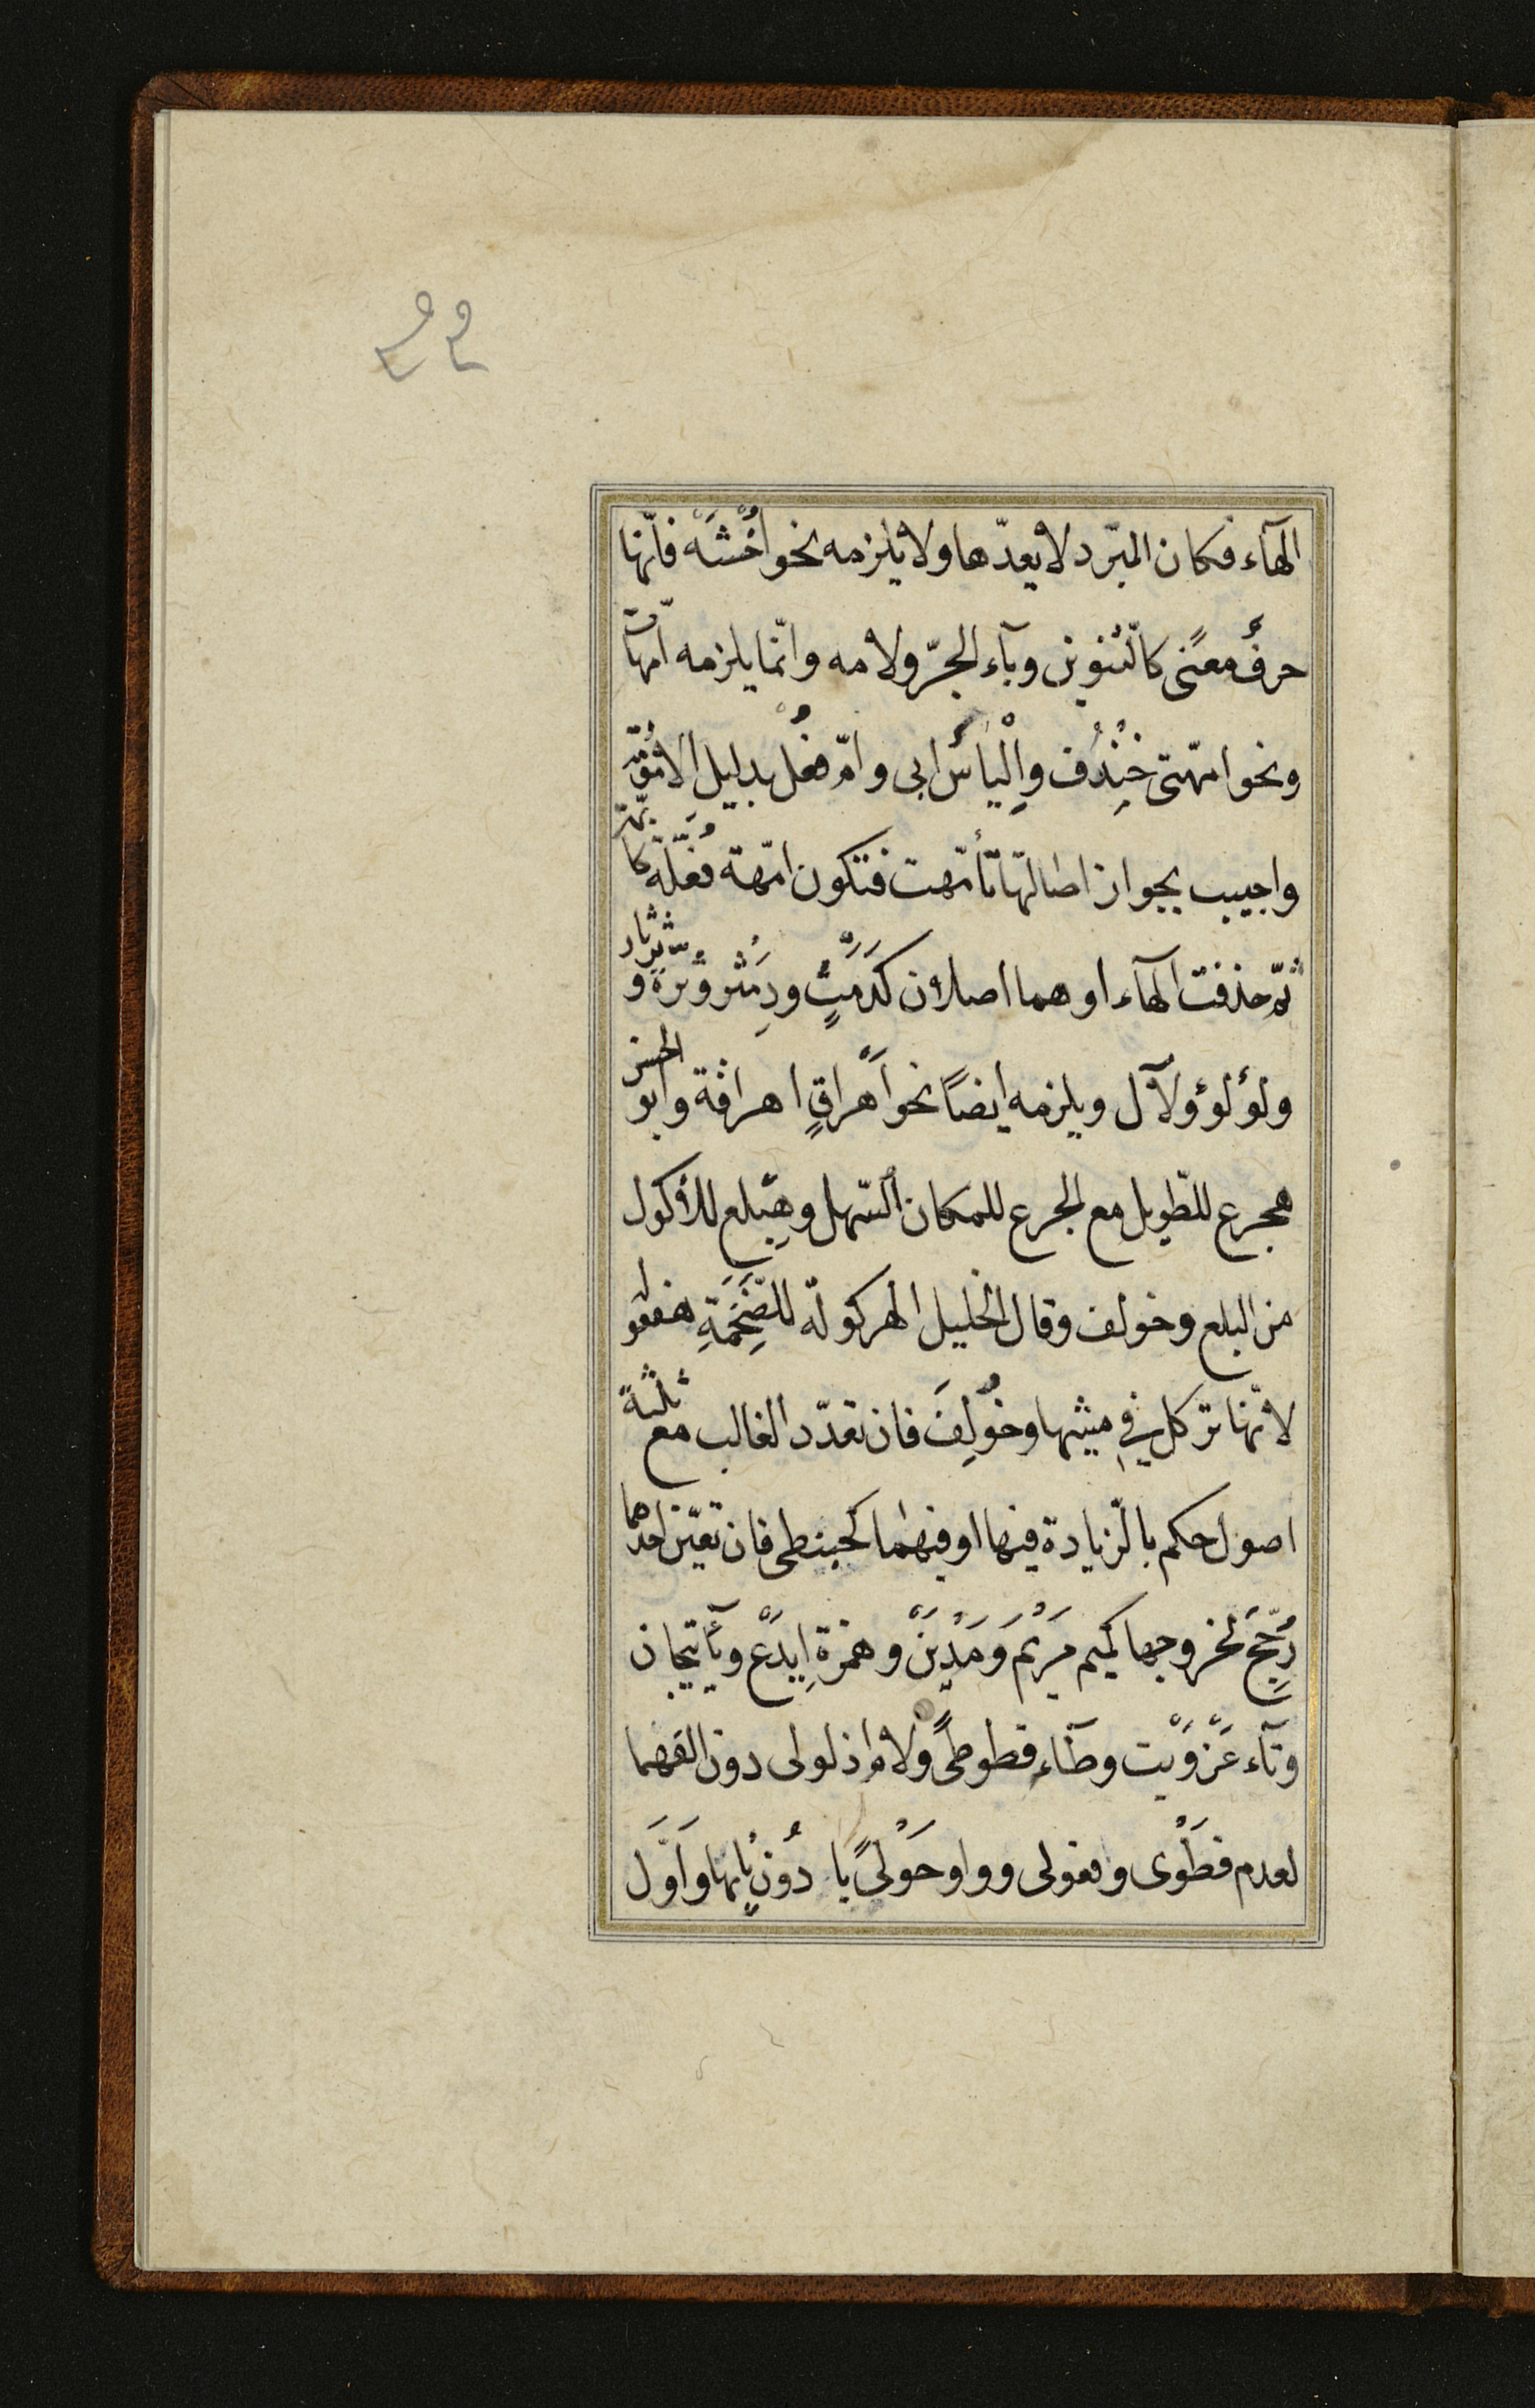 الهآء فكان المبرّد لا يعدّها ولا يلزمه نحو اُخْشَهْ فانّها
حرفُ معنًى كالتّنوين وبآء الجرّ ولامه وانّما يلزمه امّهات
ونحو امّهتى خِنْدُف واِلْيَأسُ ابى وامّ فُعْل بدليل الامُوُمَة
واجيب بجواز اصالتها تأمّهت فتكون امّهة فُعَّلَة كابّهة
ثمّ حذفت الهآء او هما اصلان كدَمَثٍ ودِمَثْر وثَرَّة وثرثار
ولؤلؤ ولآل ويلزمه ايضًا نحو اَهْرَاقٍ اهراقة وابو الحسن
هجرع للطّويل مع الجرع للمكان السّهل وهِبْلع للأكول
من البلع وخولف وقال الخليل الهركولة للضَّخْمَةِ هفعولة
لانّها تركل في مشيها وخُولِفَ فان تعدّد الغالب مع ثلثة
اصول حكم بالزّيادة فيها او فيهما كحبنطى فان تعيّن احدهما
رُجِّحَ لخروجها كميم مَرْيَم وَمَدْيَنَ وهمزة اِيدَع ويآ تيجان
وتآء عَزْوَيْت وطآء قطوطًى ولام اذلولى دون الفهما
لعدم فَعَوْلى وافعولى وواو حَوْلَايًا دُونَ يائها واَوّلَ